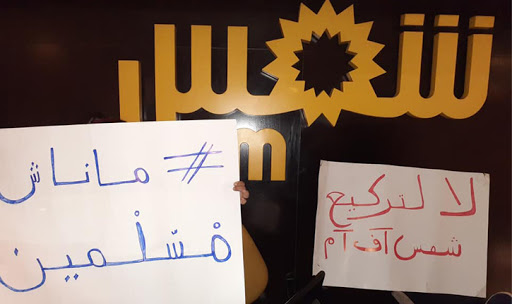 شمس
m
# ماناش
مْسَلْمين
لا لتركيع
شمس آف آم